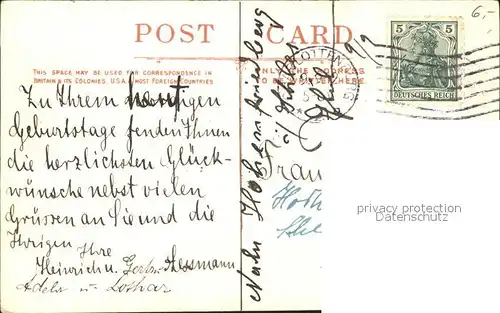 POST CARD
6,-
THIS SPACE MAY BE USED FOR CORRESPONDENCE IN
BRITAIN & ITS COLONIES, U.S.A., MOST FOREIGN COUNTRIES
ONLY THE ADDRESS
TO BE WRITTEN HERE.
Zu Ihrem heutigen
Geburtstage senden Ihnen
die herzlichsten Glück-
wünsche nebst vielen
Grüssen an Sie und die
Ihrigen
Ihre
Heinrich u. Gertr. Assmann
Adele u. Lothar
Nach Hohenfriedeberg
i/ Schles
Frau
5 5
DEUTSCHES REICH
privacy protection
Datenschutz